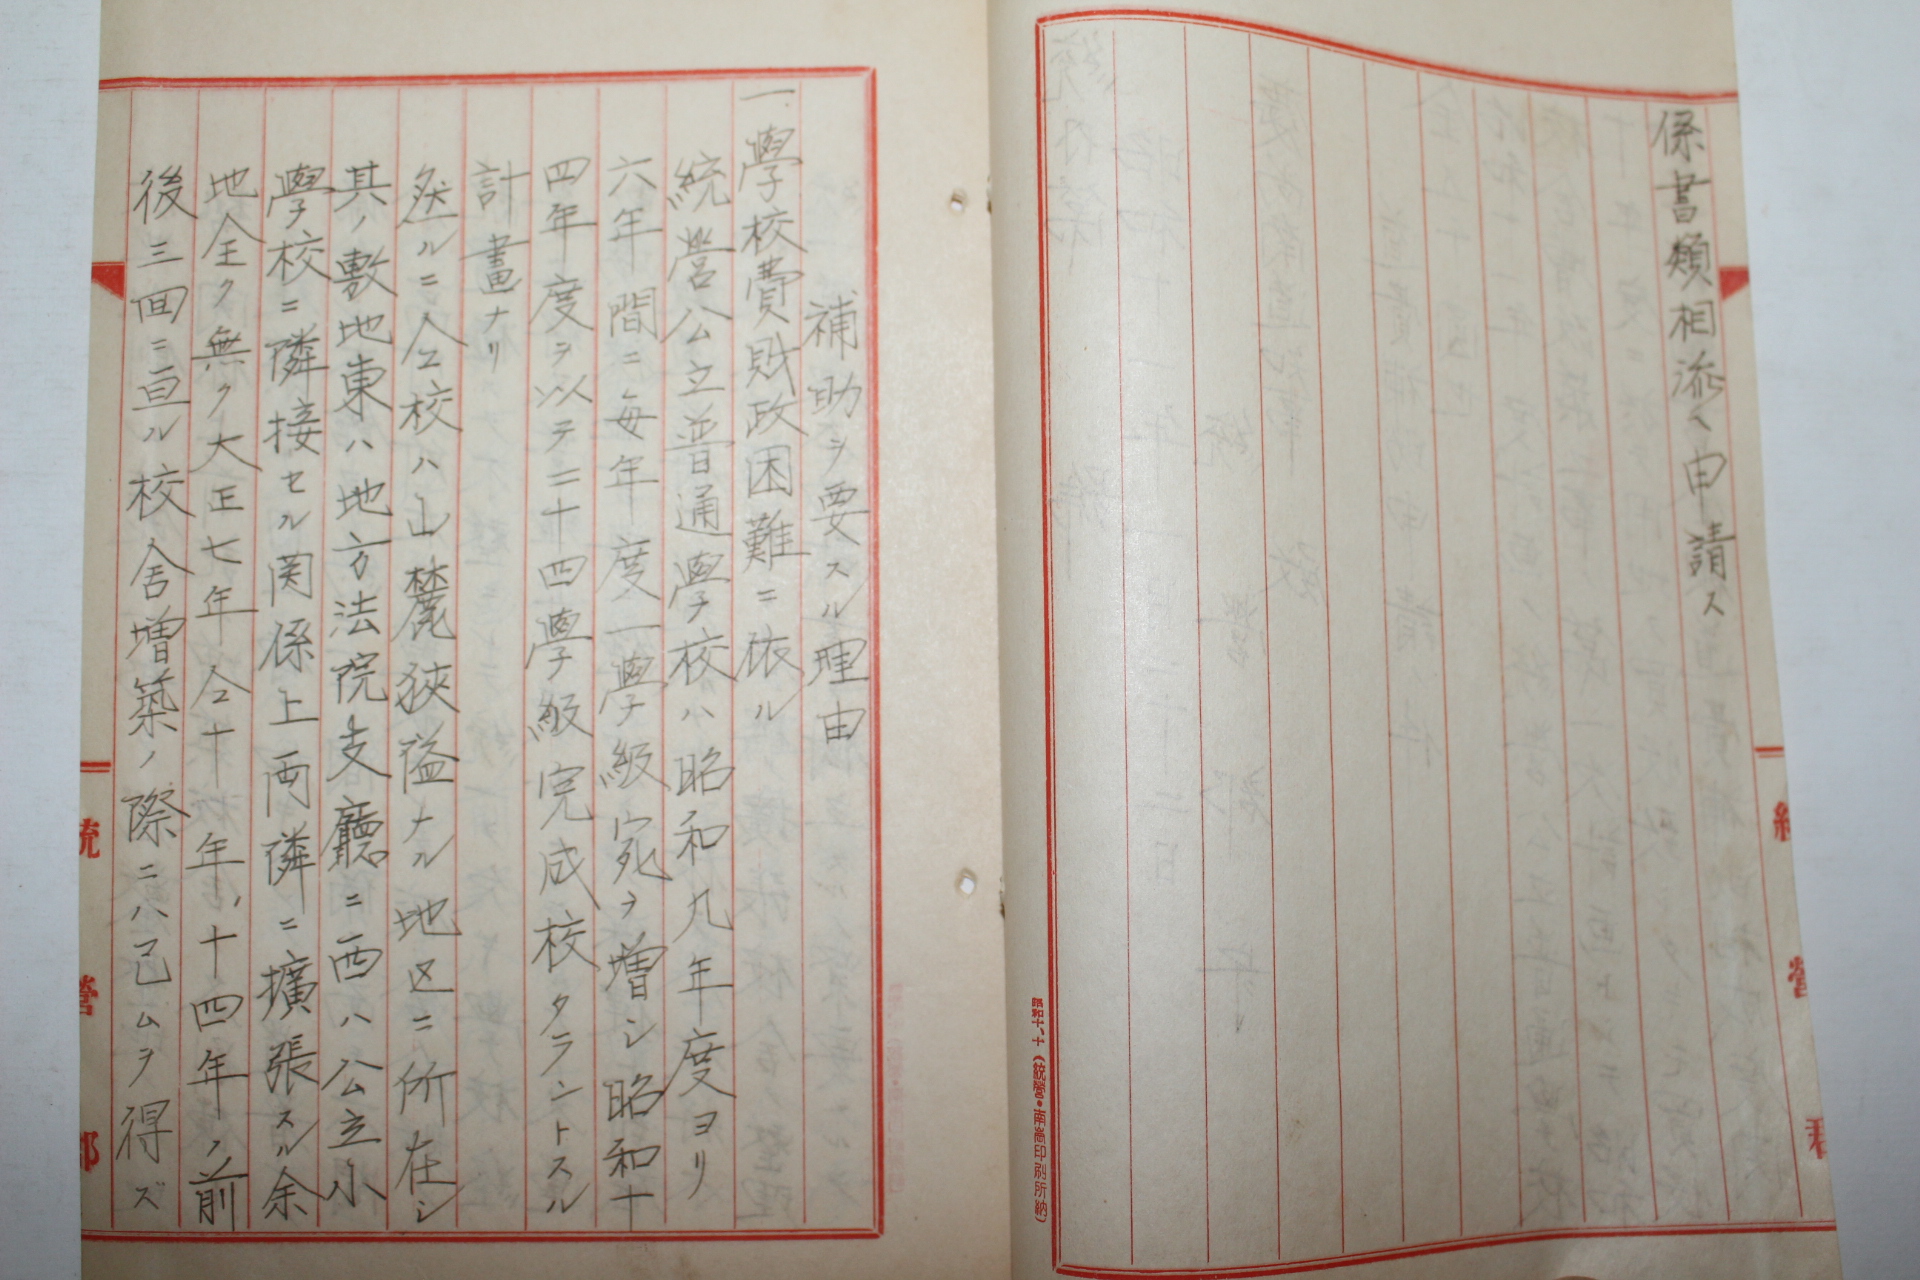 係書類相添ヘ申請ス
昭和十、十(統營・南嵩印刷所納)
補助ヲ要スル理由
一、學校費財政困難ニ依ル
統營公立普通學校ハ昭和九年度ヨリ
六年間ニ毎年度一學級宛ヲ増シ昭和十
四年度ヲ以テ二十四學級完成校タラントスル
計畫ナリ
然ルニ仝校ハ山麓狹隘ナル地区ニ所在シ
其ノ敷地東ハ地方法院支廳ニ西ハ公立小
學校ニ隣接セル関係上両隣ニ擴張スル余
地全ク無ク大正七年仝十年、十四年ノ前
後三回ニ亘ル校舎増築ノ際ニハ已ムヲ得ズ
統營郡